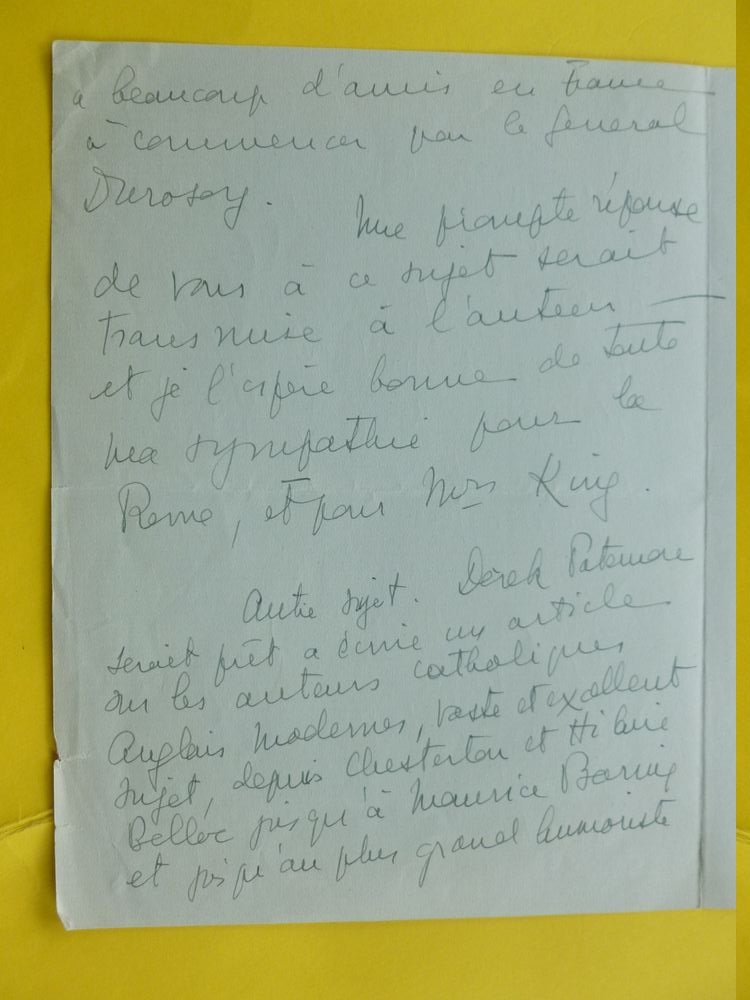 a beaucoup d'amis en France
à commencer par le Général
Durosoy.
Une prompte réponse
de vous à ce sujet serait
transmise à l'auteur —
et je l'espère bonne de toute
ma sympathie pour la
Revue, et pour Mrs King.
Autre sujet. Derek
serait prêt a écrire un article
sur les auteurs catholiques
Anglais modernes, vaste et excellent
sujet, depuis Chesterton et Hilaire
Belloc jusqu'à Maurice Baring
et jusqu'au plus grand humoriste